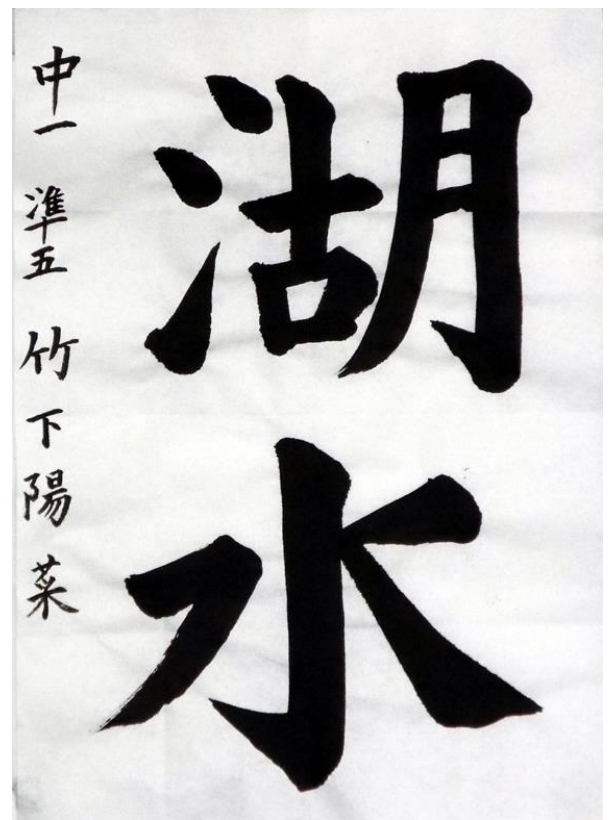 湖水
中一 準五 竹下陽菜